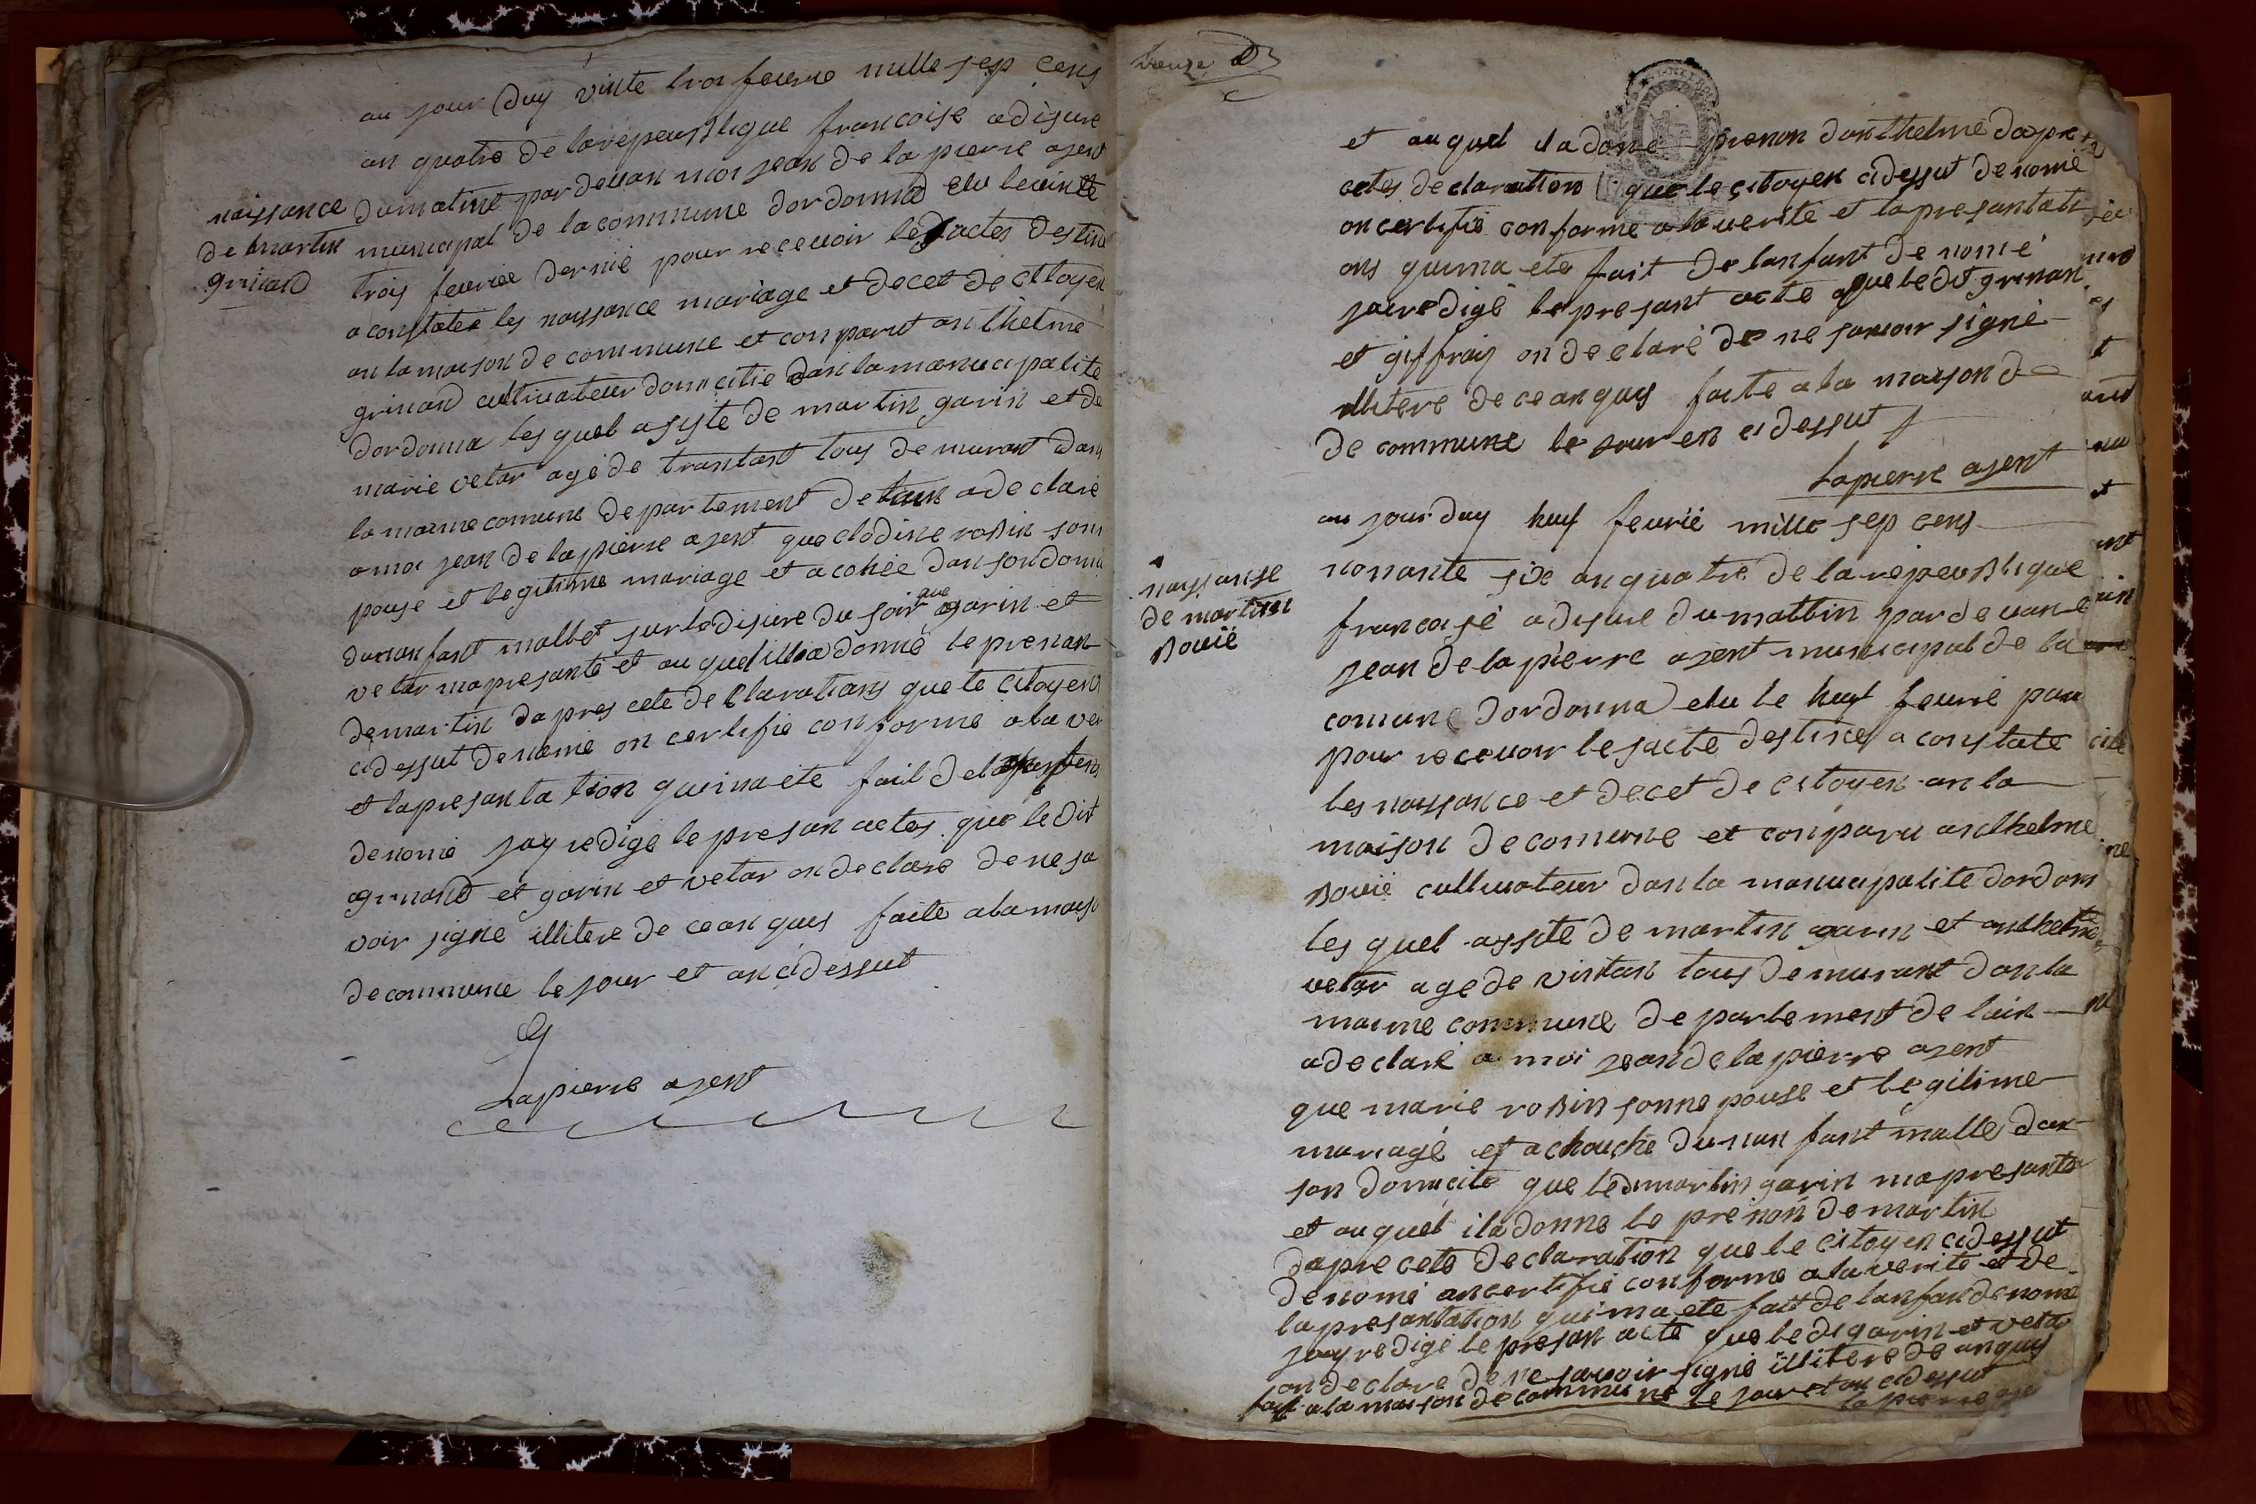 au jour duy vinte troi feuvrie mille sep cens
an quatre de la repeusblique francoise a disure
naissance
de martin
grinand
du matint par devan moi jean de la pierre ajent
municipal de la commune dordonna elu le vinte
troy feuvriee dernié pour recevoir les actes destiné
a constatee les naissance mariage et decet de citoyen
an la maison de commune et comparut anthelme
grinand cultivateur domicilie dan la manucipalite
dordonna les quel asiste de martin garin et de
marie vetar agé de trantant tous demurant dans
la maeme comune departement de lain a declaré
a moi jean de la pierre ajent que clodine robin son
pouse et legitime mariage et a cohée dan son domi
dunanfant malbet sur le disure du soir que garin et
vetar ma presante et au quel illa donné le prenan
de martin dapres cete declarations que le citoyens
cidessut denomé on certifie conforme a la ver
et la presantation qui ma ete fait de
denomé jay redige le presan actes que le dit
grinand et garin et vetar on declare de ne sa
voir signe illitere de ce an quis faite a la maiso
de commune le jour et an cidessut
Lapierre ajent
et au quel il a donne prenon danthelme dapre
cetes declaration que le citoyen cidessut denomé
on certifie conforme a la verite et la presantati
ons qui ma ete fait de lanfant denomé
jai redigé le presant acte que le dit grinan
et giffray on declaré de ne savoir signé
illitere de ce an quis faite a la maison de
de commune le jour en cidessut
Lapierre ajent
au jour duy huf feuvrié mille sep cens
naissanse
de martin
Bovié
nonante six an quatre de la repeusblique
francaisé a disure du mattin par devan
jean de la pierre ajent municipal de la
comune dordonna elu le huf feuvrié pour
pour recevoir les acte destiné a constate
les naissance et decet de citoyen an la
maison de comune et comparu anthelme
Bovié cultivateur dan la manucipalite dordonn
les quel assite de martin garin et anthelme
vetar age de vintan tous demurant dan la
maeme commune departement de lain
a declaré a moi jean de la pierre ajent
que marie robin sonne pouse et legitime
mariagé et achouche dunan fant malle dan
son domicile que le dit martin garin ma presante
et au quel il a donne le prenon de martin
dapre cete declaration que le citoyen cidessut
denomé an certifie conforme a la verite et de
la presantation qui ma ete fait de lanfan denomé
jay redigé le presan acte que le dit garin et veta
on declare de ne savoir signé illitere de anquis
fait a la maison de commune le jour et an cidessut
lapierre aje